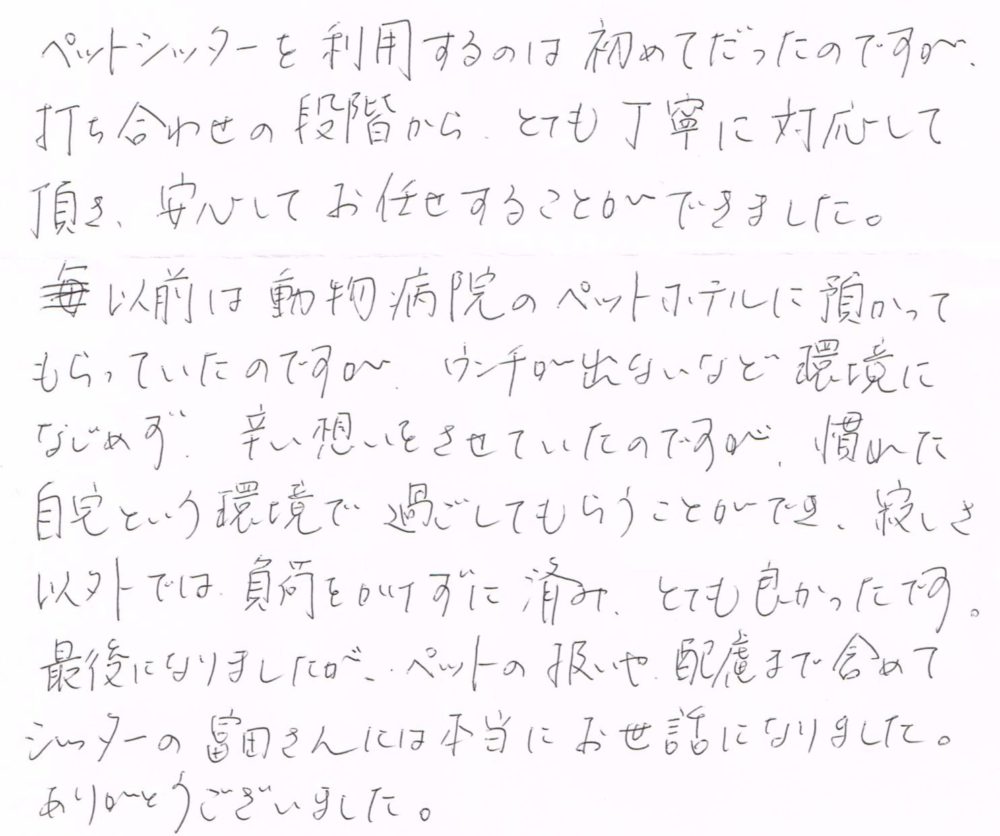 ペットシッターを利用するのは初めてだったのですが、
打ち合わせの段階から、とても丁寧に対応して
頂き、安心してお任せすることができました。
以前は動物病院のペットホテルに預かって
もらっていたのですが、ウンチが出ないなど環境に
なじめず、辛い想いをさせていたのですが、慣れた
自宅という環境で過ごしてもらうことができ、寂しさ
以外では、負荷をかけずに済み、とても良かったです。
最後になりましたが、ペットの扱いや、配慮まで含めて
シッターの冨田さんには本当にお世話になりました。
ありがとうございました。